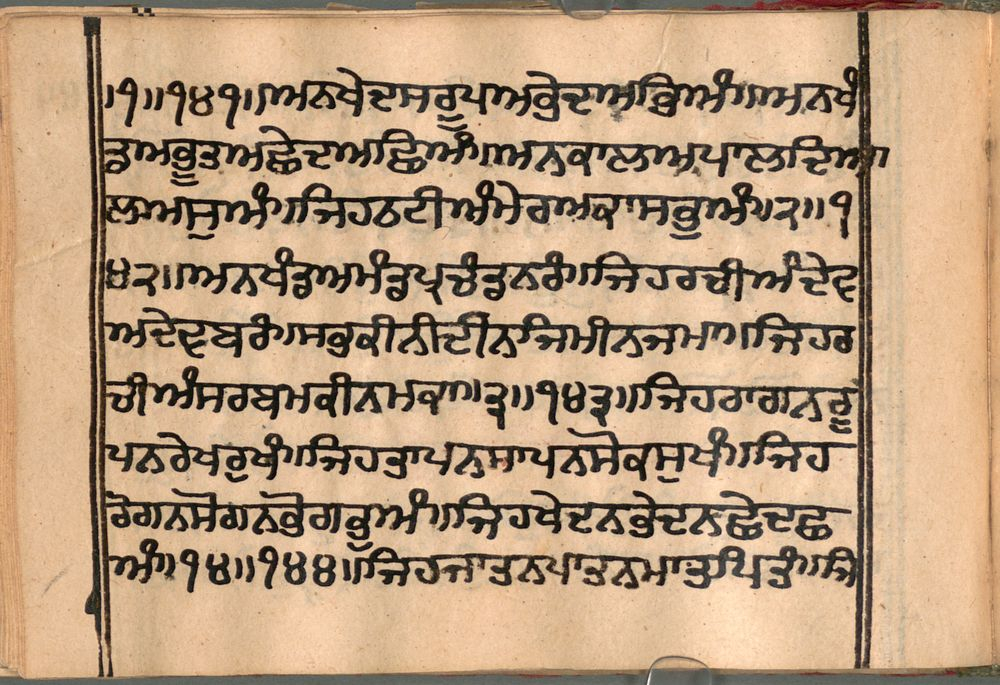 ।੧॥੧੪੧॥ਅਨਖੇਦਸਰੂਪਅਭੇਦਅਭਿਅੰ॥ਅਨਖੰ
ਡਅਭੂਤਅਛੇਦਅਛਿਅੰ॥ਅਨਕਾਲਅਪਾਲਦਿਆ
ਲਅਸੁਅੰ॥ਜਿਹਠਟੀਅੰਮੇਰਅਕਾਸਭੁਅੰ॥੨॥੧
੪੨॥ਅਨਖੰਡਅਮੰਡਪ੍ਰਚੰਡਨਰੰ॥ਜਿਹਰਚੀਅੰਦੇਵ
ਅਦੇਵਬਰੰ॥ਸਭਕੀਨੀਦੀਨਜਿਮੀਨਜਮਾ॥ਜਿਹਰ
ਚੀਅੰਸਰਬਮਕੀਨਮਕਾ॥੩॥੧੪੩॥ਜਿਹਰਾਗਨਰੂ
ਪਨਰੇਖਰੁਖੰ॥ਜਿਹਤਾਪਨਸਾਪਨਸੋਕਸੁਖੰ॥ਜਿਹ
ਰੋਗਨਸੋਗਨਭੋਗਭੁਅੰ॥ਜਿਹਖੇਦਨਭੇਦਨਛੇਦਛ
ਅੰ॥੧੪॥੧੪੪॥ਜਿਹਜਾਤਨਪਾਤਨਮਾਤਪਿਤੰ॥ਜਿ